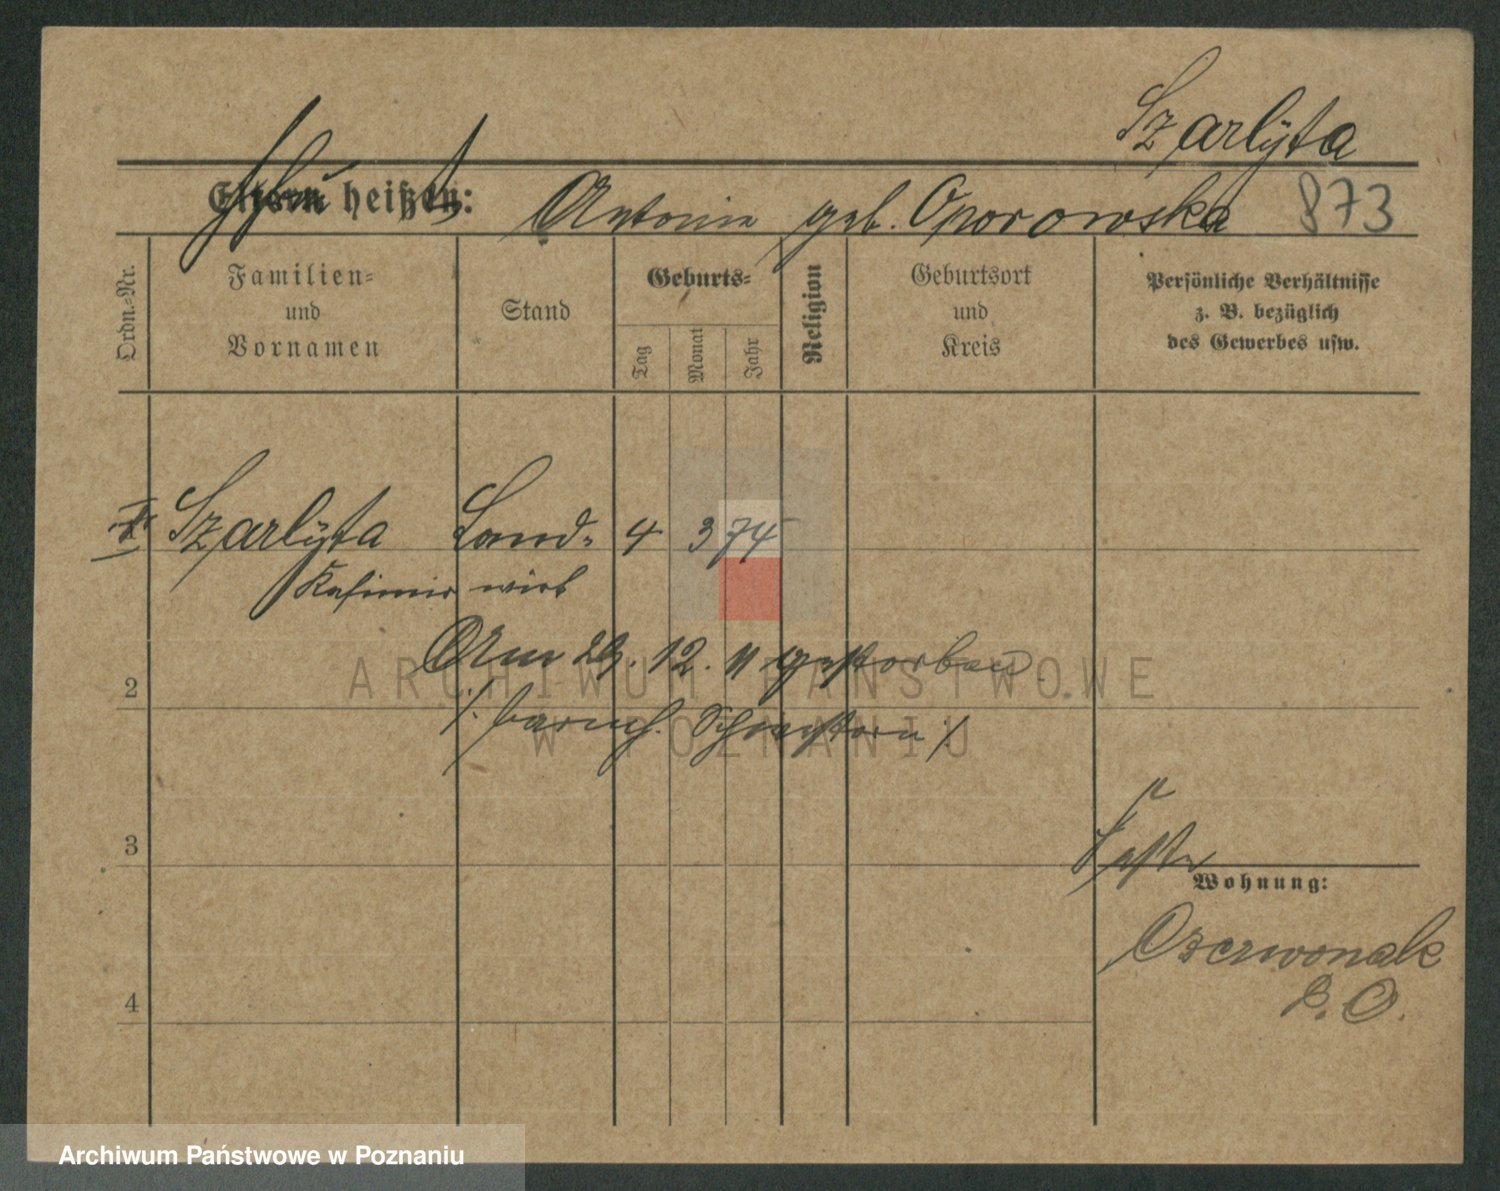 Szarlÿta
Eltern heißen: Antonie geb. Oporowska 873
Ordn.-Nr.
Familien-
und
Vornamen
Stand
Geburts-
Tag
Monat
Jahr
Religion
Geburtsort
und
Kreis
Persönliche Verhältnisse
z. B. bezüglich
des Gewerbes usw.
Szarlÿta Land- 4 3 74
Kasimir wirt
Am 29. 12. 11 gestorben.
2
/: barmh. Schwestern :/
3
Wohnung:
Czerwonak
P. O.
4
ARCHIWUM PAŃSTWOWE
W POZNANIU
Archiwum Państwowe w Poznaniu